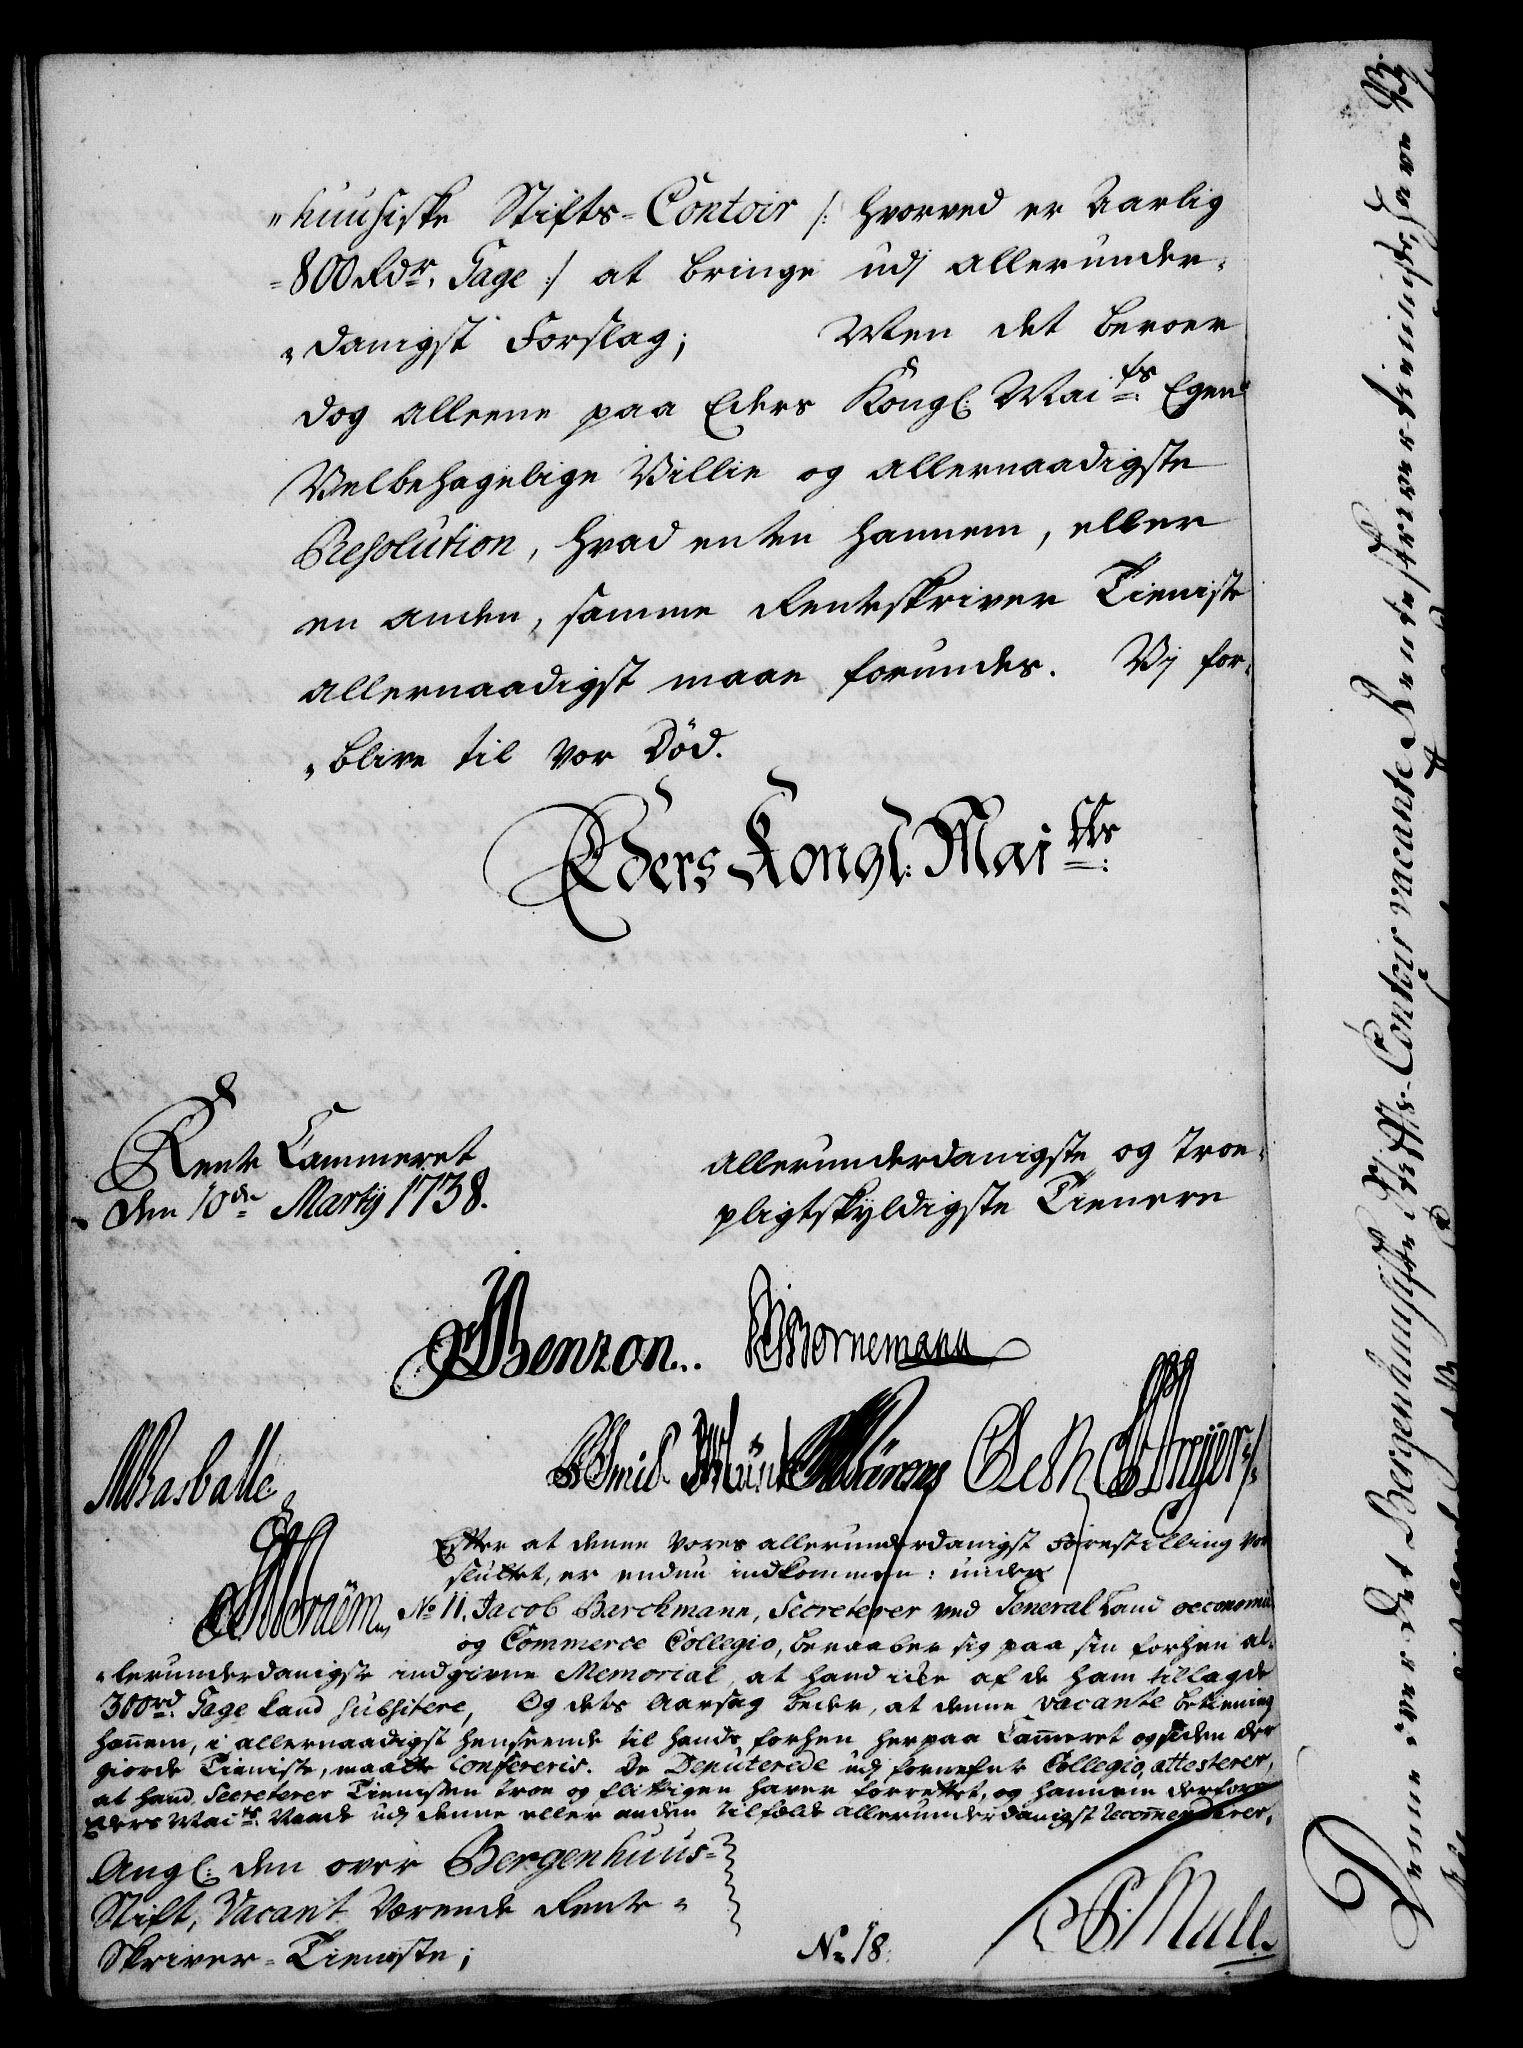 "huusiske Stifts-Contoir /: hvorved er Aarlig
-800 Rdr. Gage :/ at bringe udj allerunder-
"danigst Forslag; Men det beroer
dog alleene paa Eders Kongl: Mai:ts Egen
Velbehagelige Villie og allernaadigste
Resolution, hvad enten hannem, eller
en anden, samme Renteskriver Tieniste
allernaadigst maae forundes. Vj for-
"blive til vor Död.
Eders Kongl: Mai:tts
Rente Cammeret
den 10de Martij 1738.
allerunderdanigste og troe-
pligtskyldigste Tienere
Benzon..
Bornemann
Basballe
Efter at denne vores allerunderdanigst Forestilling var
sluttet, er endnu indkommen: under
No 11. Jacob Barchmann, Secreterer ved General Land oeconomie
og Commerce Collegio, beraaber sig paa sin forhen al-
"lerunderdanigste indgivne Memorial, at hand icke af de ham tillagde
300 rd. Gage kand subsistere, Og dets Aarsag beder, at denne vacante betiening
hannem, i allernaadigst henseende til hands forhen her paa Cammeret og siden der
giorde Tieniste, maatte Confereris. De Deputerede udj fornefnte Collegio, attesterer,
at hand Secreterer Tienisten troe og flittigen haver forrettet, og hannem derfore
Eders Mai:ts Naade udj denne eller anden tilfælde allerunderdanigst recommenderer.
Angl: den over Bergenhuus-
Stift, Vacant Værende Rente-
Skriver-Tieniste;
No 18.
Mule
Denne over det Bergenhuusiske Stifts-Contoir vacante Renteskriver tieniste, have Vj